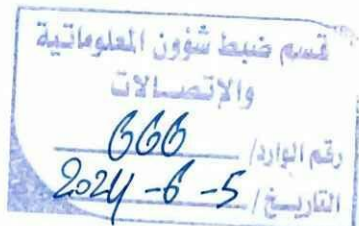 قسم ضبط شؤون المعلوماتية
والإتصالات
رقم الوارد/ 666
التاريخ/ 2024-6-5